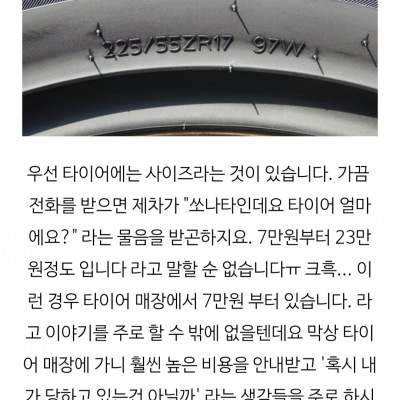 225/55ZR17 97W
우선 타이어에는 사이즈라는 것이 있습니다. 가끔
전화를 받으면 제차가 "쏘나타인데요 타이어 얼마
에요?" 라는 물음을 받곤하지요. 7만원부터 23만
원정도 입니다 라고 말할 순 없습니다ㅠ 크흑... 이
런 경우 타이어 매장에서 7만원 부터 있습니다. 라
고 이야기를 주로 할 수 밖에 없을텐데요 막상 타이
어 매장에 가니 훨씬 높은 비용을 안내받고 '혹시 내
가 당하고 있는건 아닐까' 라는 생각들을 주로 하시